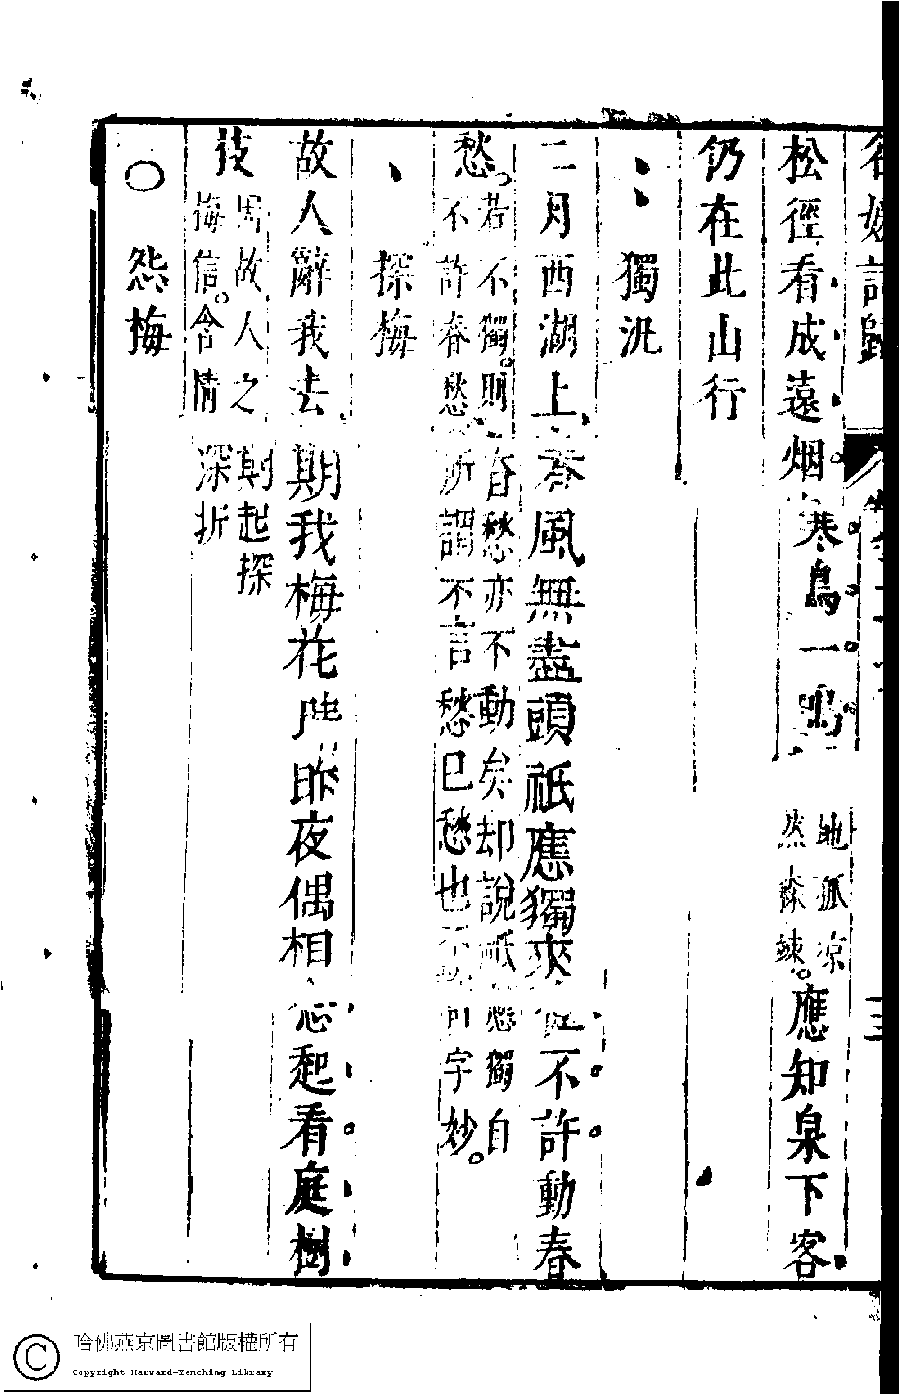 名媛詩歸
松徑看成遠烟寒鳥一鳴
地孤凉
然森竦
應知泉下客
仍在此山行
獨汎
二月西湖上春風無盡頭祇應獨來不許動春
愁
若不獨則春愁亦不動矣却說祇應獨自
不許春愁所謂不言愁已愁也不許字妙
探梅
故人辭我去期我梅花時昨夜偶相起看庭樹
技
周故人之期起探
梅信含情深折
怨梅
哈佛燕京圖書館版權所有
Copyright Harvard-Yenching Library